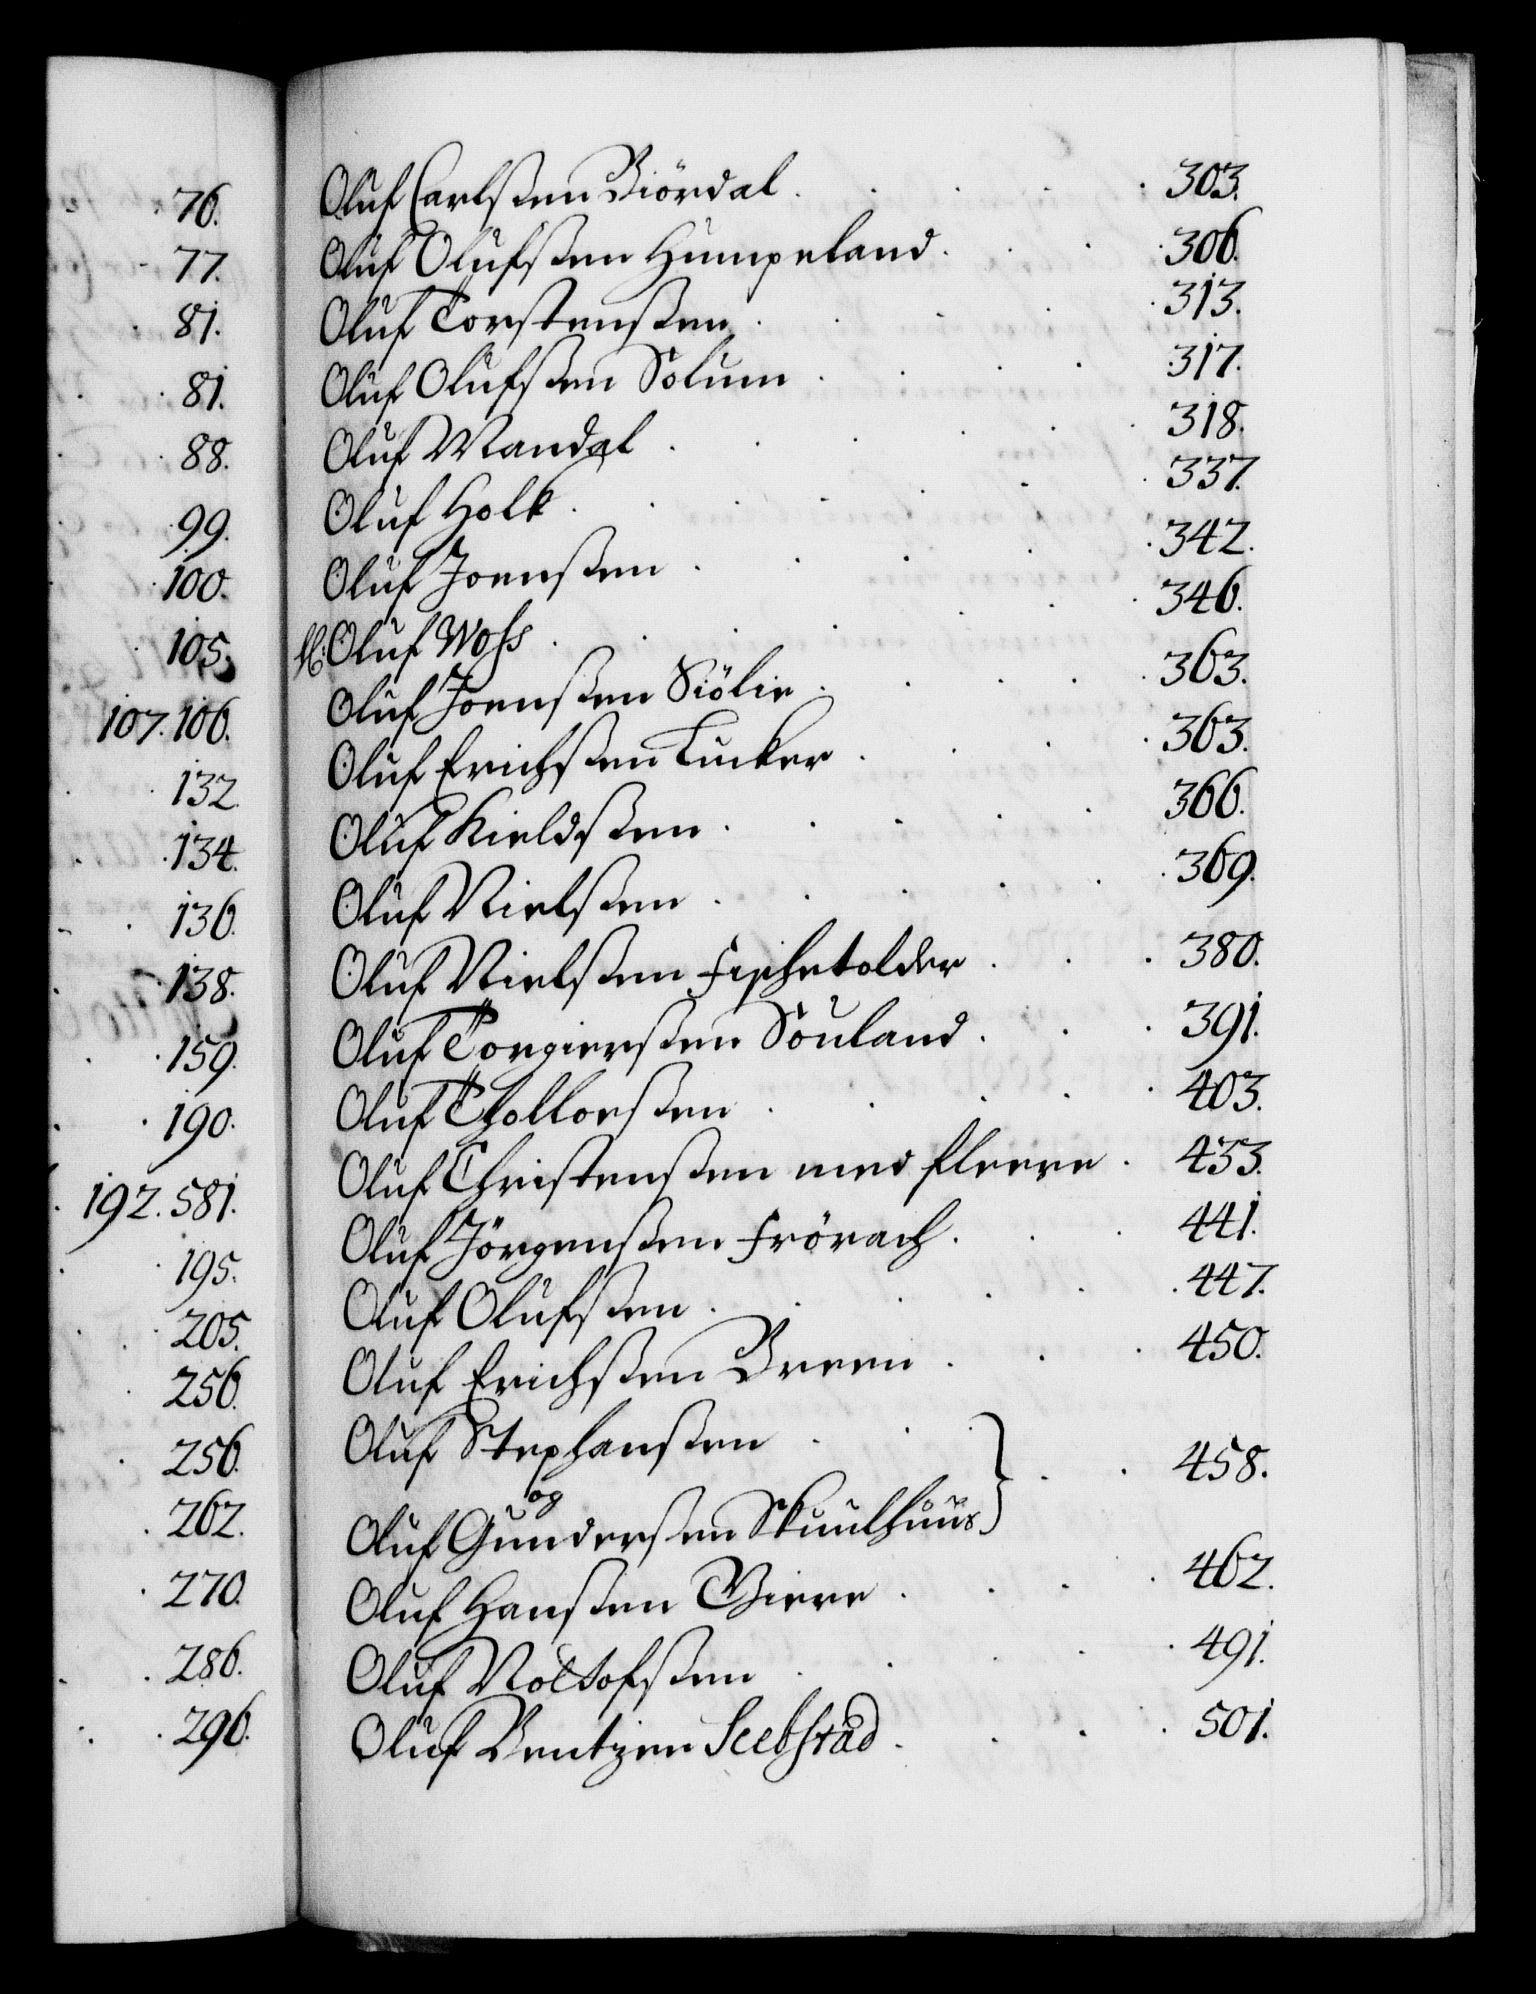 76.
77.
81.
81.
88.
99.
100.
105.
107. 106.
132.
134.
136.
138.
159.
190.
192. 581.
195.
205.
256.
256.
262.
270.
286.
296.
Oluf Carlsßen Biördal . 303.
Oluf Olufsßen Humpeland . 306.
Oluf Torstensßen . 313.
Oluf Olufsßen Solum . 317.
Oluf Mandal . 318.
Oluf Holk . 337.
Oluf Joensßen . 342.
Oluf Woss . 346.
Oluf Joensßen Siölie . 363.
Oluf Erichsßen Tucker . 363.
Oluf Kieldsßen . 366.
Oluf Nielsßen . 369.
Oluf Nielsßen Fischetolder . 380.
Oluf Torgiersßen Souland . 391.
Oluf Thollorsßen . 403.
Oluf Christensßen med fleere . 433.
Oluf Jörgensßen Frörach . 441.
Oluf Olufsßen . 447.
Oluf Erichsßen Breen . 450.
Oluf Stephansßen
og
Oluf Gundersßen Skuulhuus } 458.
Oluf Hansßen Viere . 462.
Oluf Noltofsßen . 491.
Oluf Bentzen Seebstad . 501.